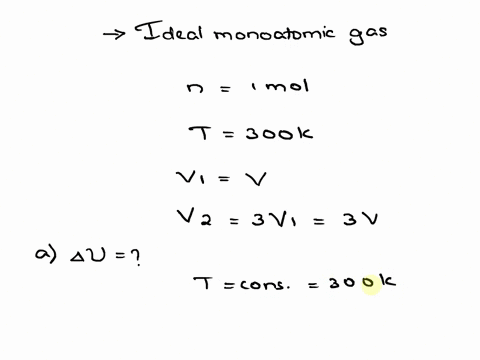 → Ideal monoatomic gas
n = 1 mol
T = 300k
V1 = V
V2 = 3V1 = 3V
a) ΔU = ?
T = cons. = 300k